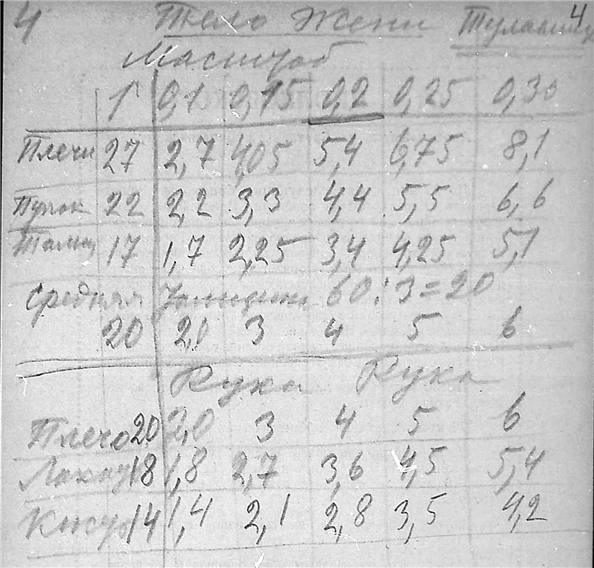 4 Тело Жени Туловищ 4
Масштаб
1 0,1 0,15 0,2 0,25 0,30
Плечи 27 2,7 4,05 5,4 6,75 8,1
Пупок 22 2,2 3,3 4,4 5,5 6,6
Талии 17 1,7 2,25 3,4 4,25 5,1
Средняя 60:3=20
20 2,0 3 4 5 6
Рука Рука
Плечо 20 2,0 3 4 5 6
18 1,8 2,7 3,6 4,5 5,4
14 1,4 2,1 2,8 3,5 4,2